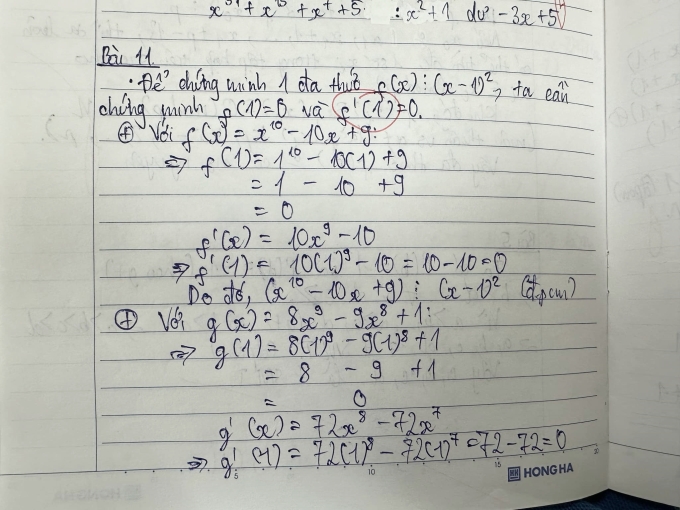 + x⁺ + 5 : x² + 1 dư - 3x + 5
Bài 11.
• Để chứng minh 1 đa thức f(x) ⋮ (x - 1)², ta cần
chứng minh f(1) = 0 và f'(1) = 0.
⊕ Với f(x) = x¹⁰ - 10x + 9:
=> f(1) = 1¹⁰ - 10(1) + 9
= 1 - 10 + 9
= 0
f'(x) = 10x⁹ - 10
=> f'(1) = 10(1)⁹ - 10 = 10 - 10 = 0
Do đó, (x¹⁰ - 10x + 9) ⋮ (x - 1)² (đpcm)
⊕ Với g(x) = 8x⁹ - 9x⁸ + 1:
=> g(1) = 8(1)⁹ - 9(1)⁸ + 1
= 8 - 9 + 1
= 0
g'(x) = 72x⁸ - 72x⁷
=> g'(1) = 72(1)⁸ - 72(1)⁷ = 72 - 72 = 0
5 10 15 20
HONG HA HH HONG HA